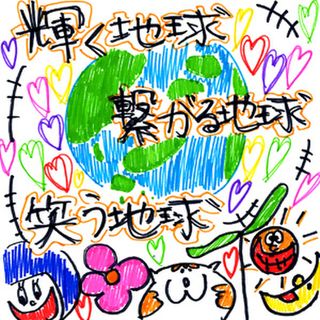 輝く地球
繋がる地球
笑う地球